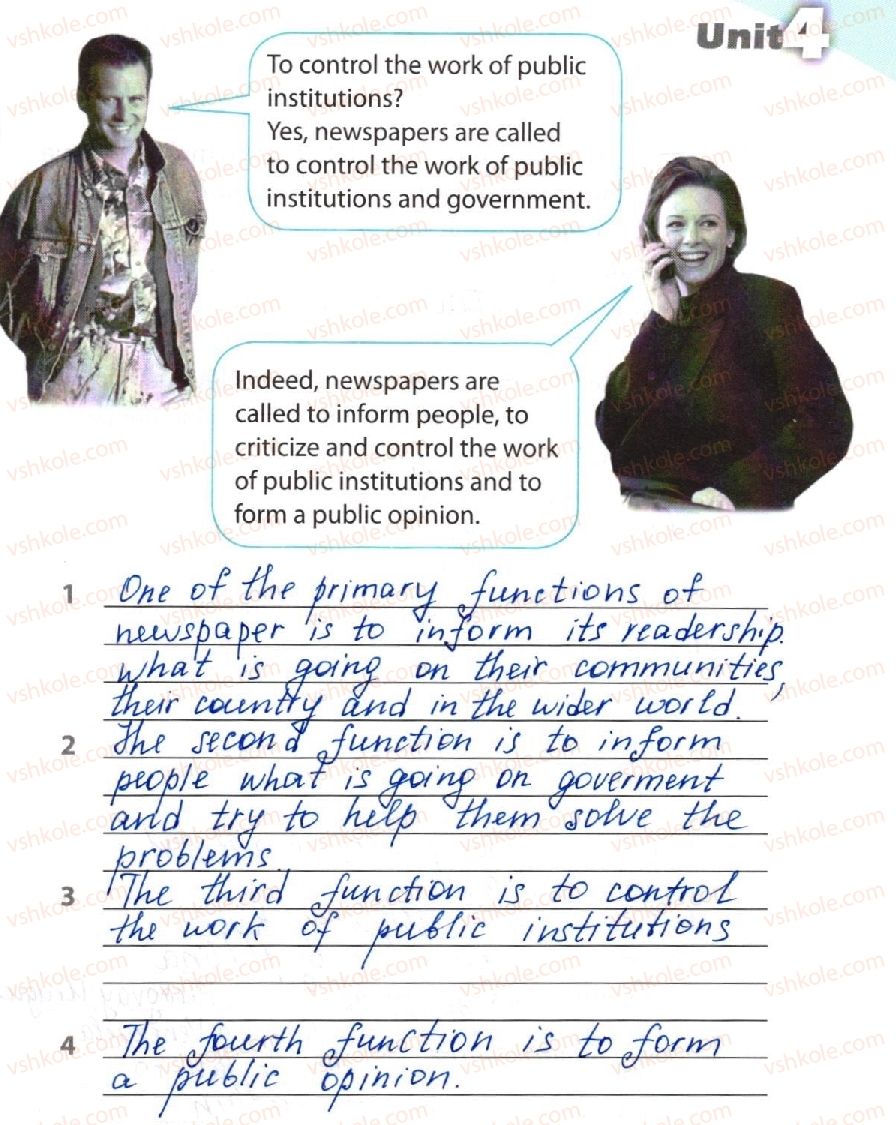 Unit 4
To control the work of public
institutions?
Yes, newspapers are called
to control the work of public
institutions and government.
Indeed, newspapers are
called to inform people, to
criticize and control the work
of public institutions and to
form a public opinion.
1 One of the primary functions of
newspaper is to inform its readership.
what is going on their communities,
their country and in the wider world.
2 The second function is to inform
people what is going on goverment
and try to help them solve the
problems.
3 The third function is to control
the work of public institutions
4 The fourth function is to form
a public opinion.